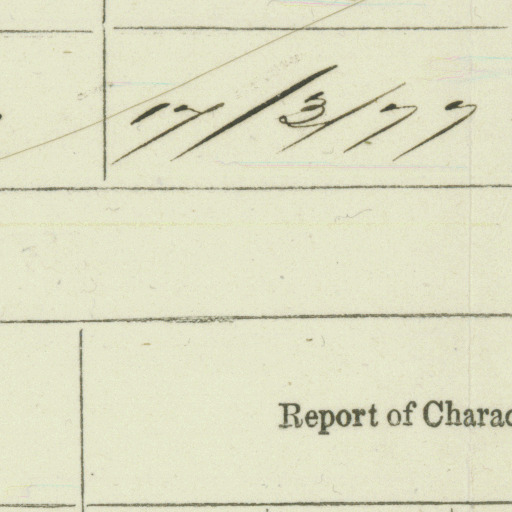 17/3/77
Report of Charac